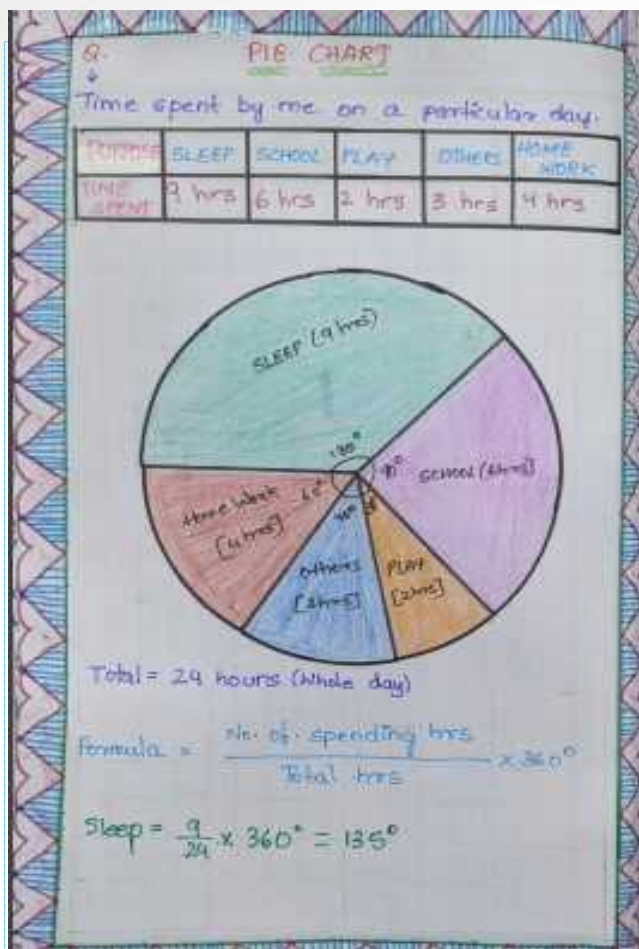 Q.
PIE CHART
Time spent by me on a particular day.
PURPOSE SLEEP SCHOOL PLAY OTHERS HOME WORK
TIME SPENT 9 hrs 6 hrs 2 hrs 3 hrs 4 hrs
SLEEP (9 hrs)
135°
90°
SCHOOL (6hrs]
60°
Home Work
[4 hrs]
Others
[3hrs]
PLAY
[2hrs]
Total = 24 hours (Whole day)
Formula = No. of. spending hrs
Total hrs
× 360°
Sleep = 9/24 × 360° = 135°